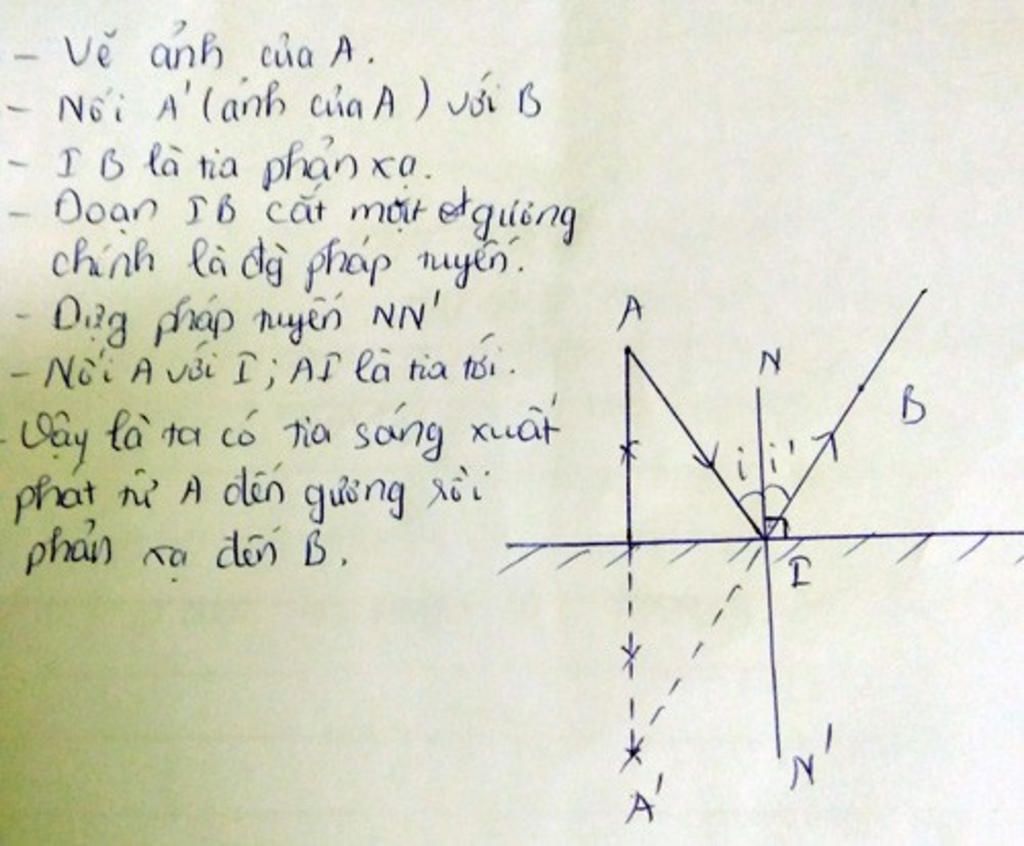 - Vẽ ảnh của A.
- Nối A' (ảnh của A) với B
- IB là tia phản xạ.
- Đoạn IB cắt mặt gương
chính là đg pháp tuyến.
- Dựg pháp tuyến NN'
- Nối A với I; AI là tia tới.
- Vậy là ta có tia sáng xuất
phát từ A đến gương rồi
phản xạ đến B.
A
N
B
i i'
I
N'
A'